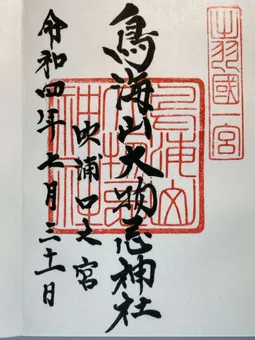 出羽國一宮
鳥海山大物忌神社
吹浦口之宮
令和四年七月三十一日